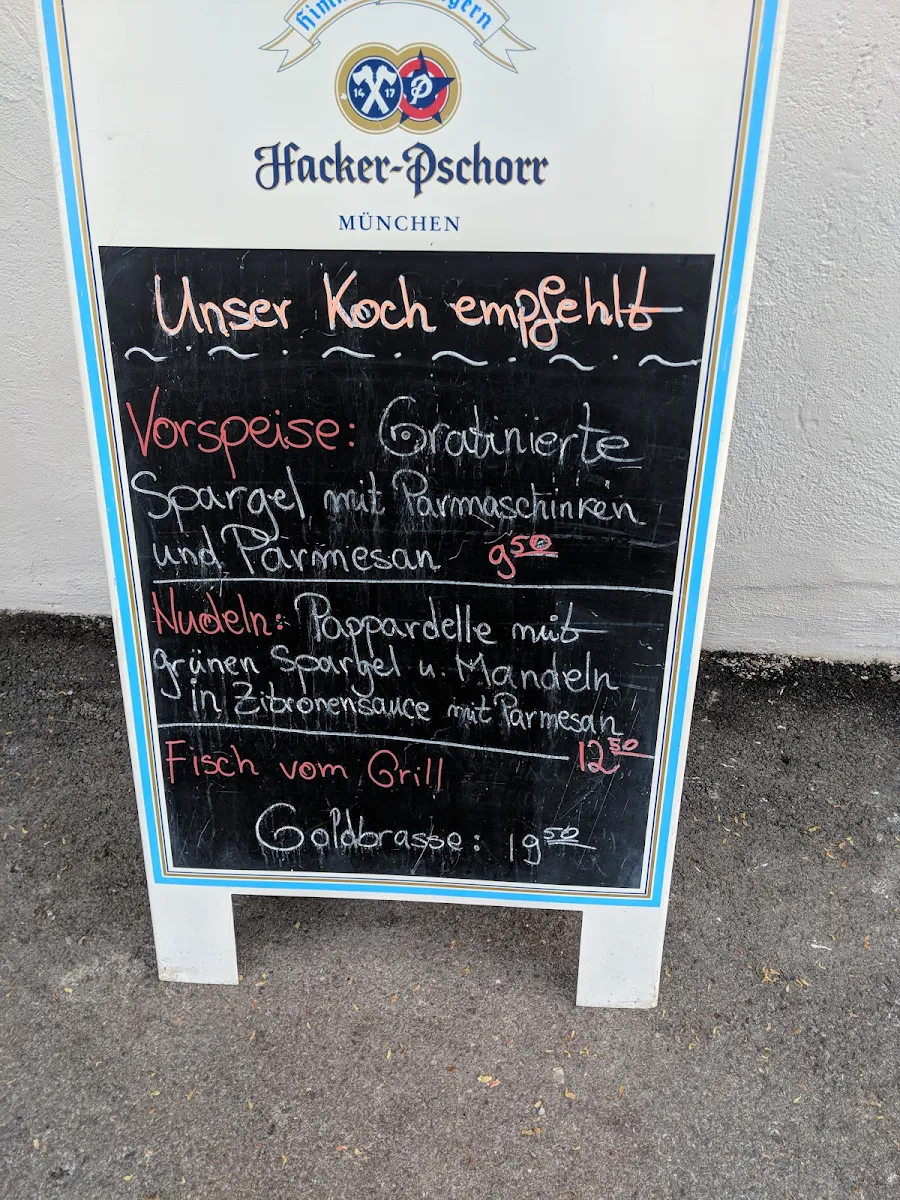 14 17 P
Hacker-Pschorr
MÜNCHEN
Unser Koch empfehlt
Vorspeise: Gratinierte
Spargel mit Parmaschinken
und Parmesan 9.50
Nudeln: Pappardelle mit
grünen Spargel u. Mandeln
in Zitronensauce mit Parmesan
12.50
Fisch vom Grill
Goldbrasse: 19.50